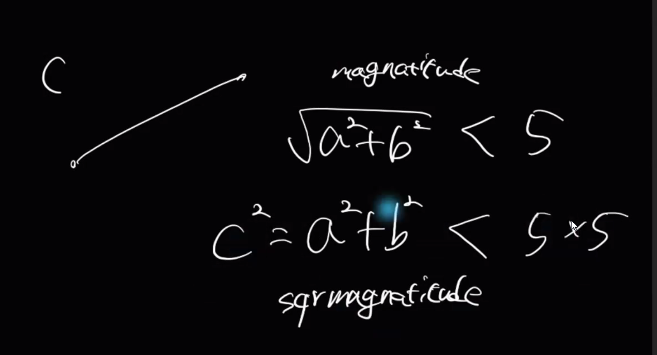 C
magnatitude
√a²+b² < 5
c² = a²+b² < 5×5
sqrmagnatitude